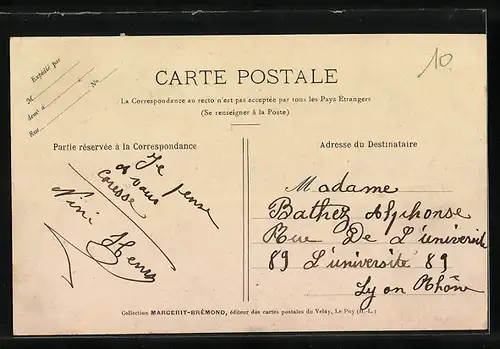 10
Expédié par
M
demt à
Rue N°
CARTE POSTALE
La Correspondance au recto n'est pas acceptée par tous les Pays Étrangers
(Se renseigner à la Poste)
Partie réservée à la Correspondance
Je pense
à vous
caresse
Nini
Henri
Adresse du Destinataire
Madame
Bathez Alphonse
Rue De L'université
89 L'université 89
Lyon Rhône
Collection MARGERIT-BRÉMOND, éditeur des cartes postales du Velay, Le Puy (H.-L.)